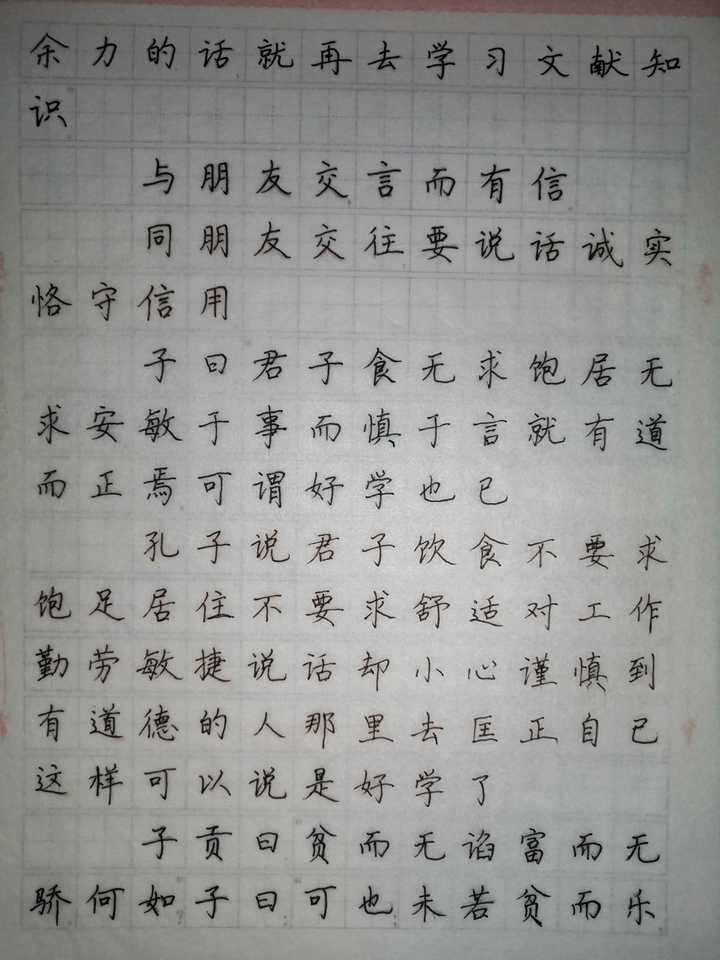 余力的话就再去学习文献知
识
与朋友交言而有信
同朋友交往要说话诚实
恪守信用
子曰君子食无求饱居无
求安敏于事而慎于言就有道
而正焉可谓好学也已
孔子说君子饮食不要求
饱足居住不要求舒适对工作
勤劳敏捷说话却小心谨慎到
有道德的人那里去匡正自己
这样可以说是好学了
子贡曰贫而无谄富而无
骄何如子曰可也未若贫而乐